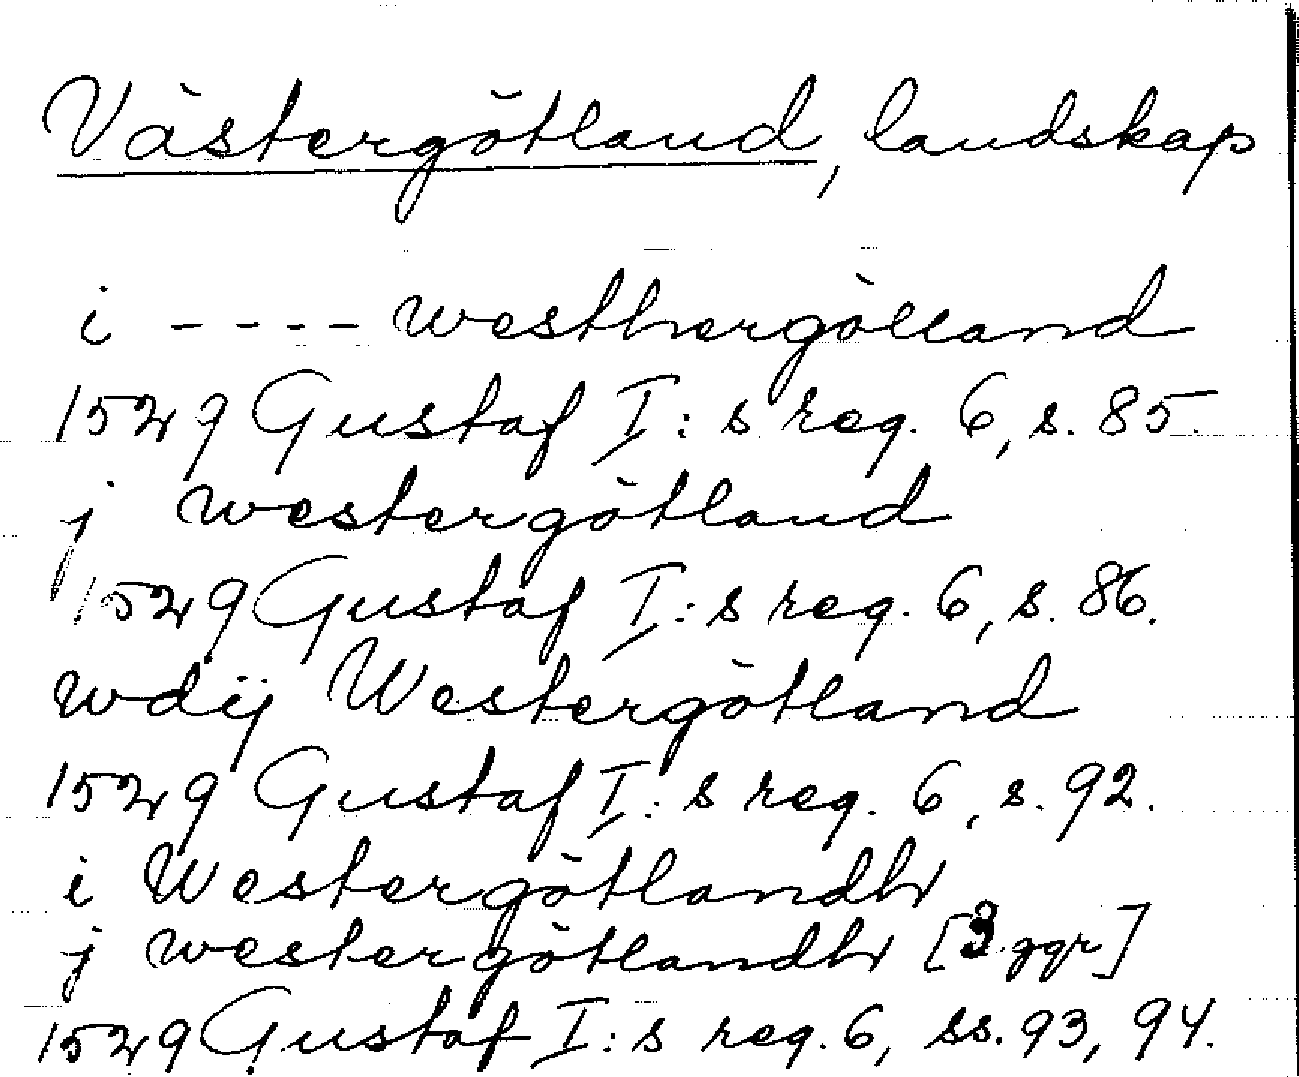 Västergötland, landskap
i - - - - westhergötland
1529 Gustaf I:s reg. 6, s. 85.
j westergötland
1529 Gustaf I:s reg. 6, s. 86.
wdij Westergötland
1529 Gustaf I:s reg. 6, s. 92.
i Westergötlandh
j westergötlandh [3 ggr]
1529 Gustaf I:s reg. 6, ss. 93, 94.